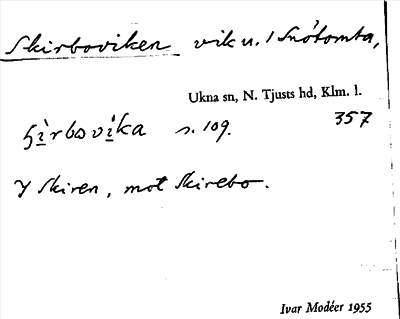 Skirboviken vik u. / Snötomta,
Ukna sn, N. Tjusts hd, Klm. l.
357
s. 109.
Y Skiren, mot Skirebo.
Ivar Modéer 1955